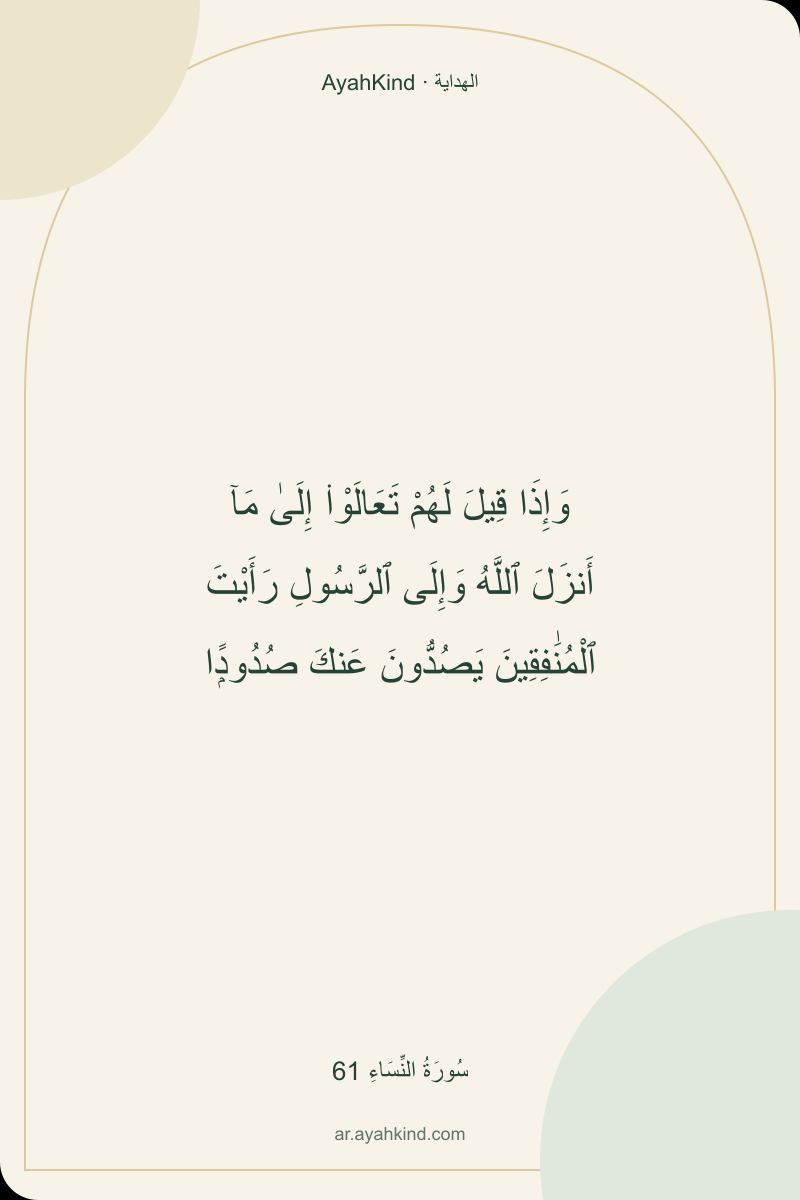 AyahKind · الهداية
وَإِذَا قِيلَ لَهُمْ تَعَالَوْا۟ إِلَىٰ مَآ
أَنزَلَ ٱللَّهُ وَإِلَى ٱلرَّسُولِ رَأَيْتَ
ٱلْمُنَٰفِقِينَ يَصُدُّونَ عَنكَ صُدُودًۭا
سُورَةُ النِّسَاءِ 61
ar.ayahkind.com